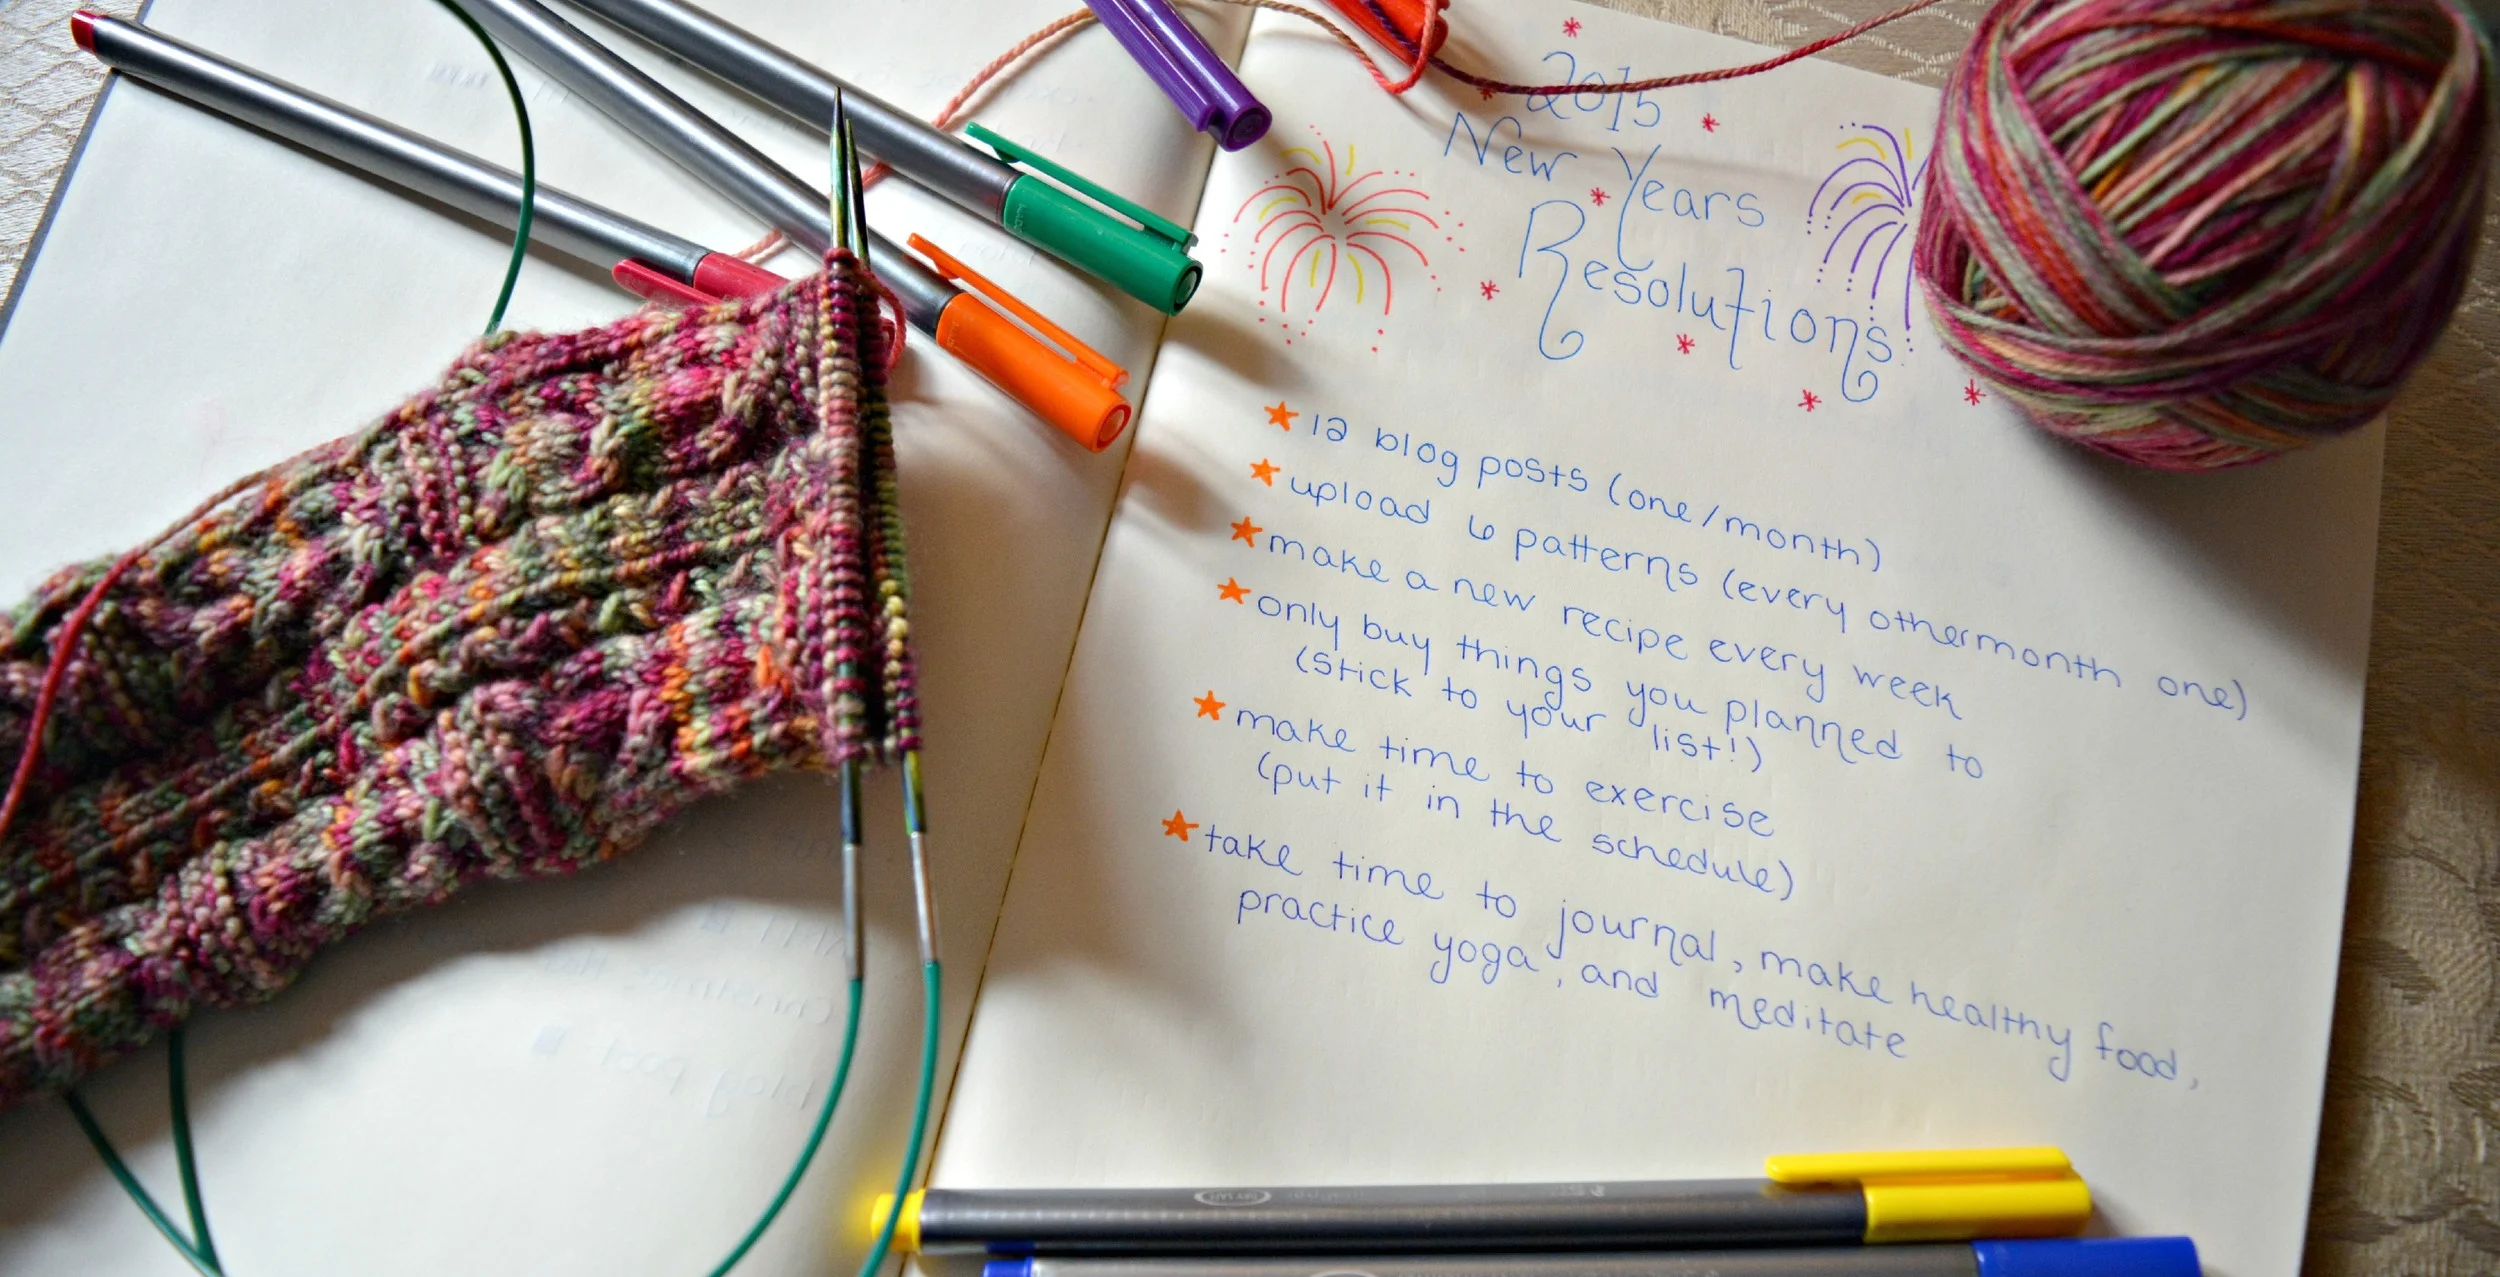 2015
New Years
Resolutions
12 blog posts (one/month)
upload 6 patterns (every other month one)
make a new recipe every week
only buy things you planned to
(stick to your list!)
make time to exercise
(put it in the schedule)
take time to journal, make healthy food,
practice yoga, and meditate
DRY SAFE